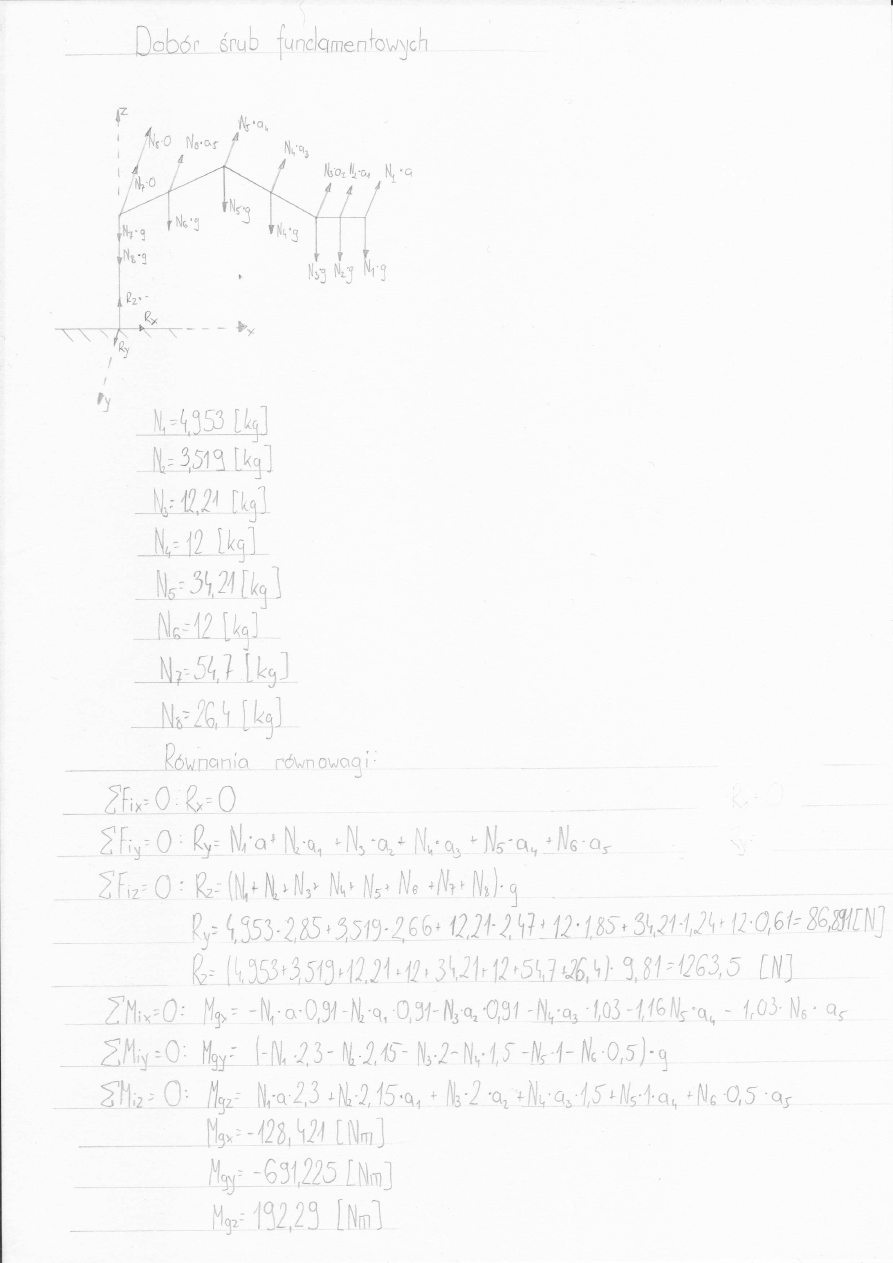 Dobór śrub fundamentowych
z
N₈·0
N₇·0
N₆·a₅
N₅·a₄
N₄·a₃
N₃·a₂ N₂·a₁
N₁·a
N₇·g
N₈·g
N₆·g
N₅·g
N₄·g
N₃g N₂g N₁·g
Rz
Rx
x
Ry
y
N₁=4,953 [kg]
N₂=3,519 [kg]
N₃=12,21 [kg]
N₄=12 [kg]
N₅=34,21 [kg]
N₆=12 [kg]
N₇=54,7 [kg]
N₈=26,4 [kg]
Równania równowagi:
ΣFix=0: Rx=0
ΣFiy=0: Ry= N₁·a+ N₂·a₁ +N₃·a₂+ N₄·a₃ +N₅·a₄ +N₆·a₅
ΣFiz=0: Rz=(N₁+N₂+N₃+N₄+N₅+N₆+N₇+N₈)·g
Ry=4,953·2,85+3,519·2,66+12,21·2,47+12·1,85+34,21·1,24+12·0,61=86,891[N]
Rz=(4,953+3,519+12,21+12+34,21+12+54,7+26,4)·9,81=1263,5 [N]
ΣMix=0: Mgx= -N₁·a·0,91-N₂·a₁·0,91-N₃·a₂·0,91-N₄·a₃·1,03-1,16N₅·a₄-1,03·N₆·a₅
ΣMiy=0: Mgy= (-N₁·2,3-N₂·2,15-N₃·2-N₄·1,5-N₅·1-N₆·0,5)·g
ΣMiz=0: Mgz= N₁·a·2,3+N₂·2,15·a₁+N₃·2·a₂+N₄·a₃·1,5+N₅·1·a₄+N₆·0,5·a₅
Mgx=-128,421 [Nm]
Mgy=-691,225 [Nm]
Mgz=192,29 [Nm]